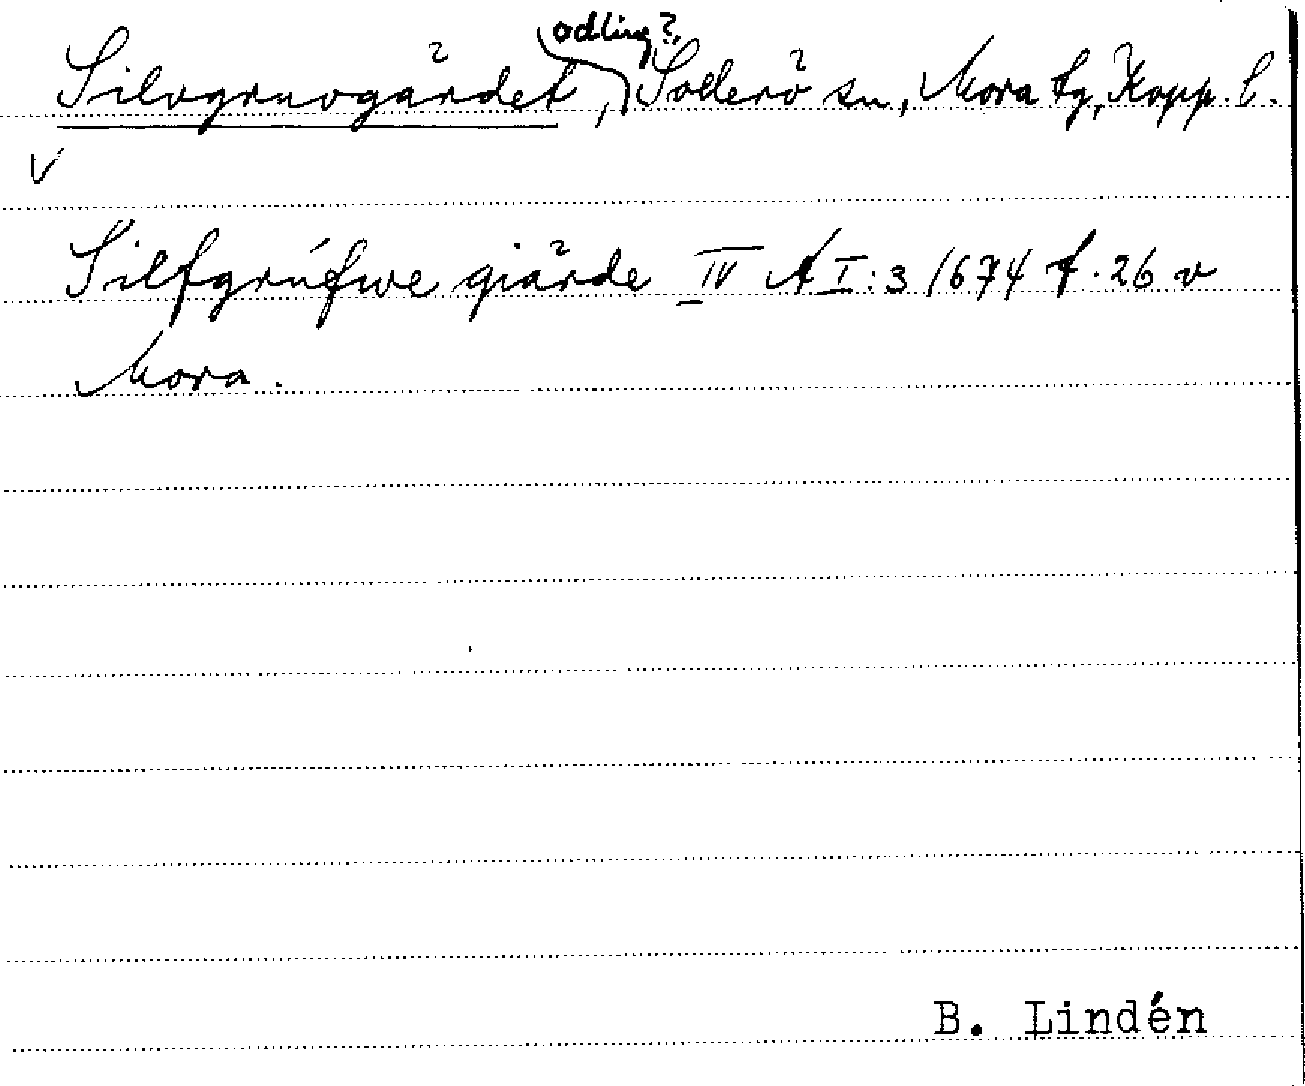 odling?,
Silvgruvogärdet, Sollerö sn, Mora tg, Kopp. l.
V
Silfgrúfwe giärde IV A I:3 1674 f. 26 v
Mora.
B. Lindén